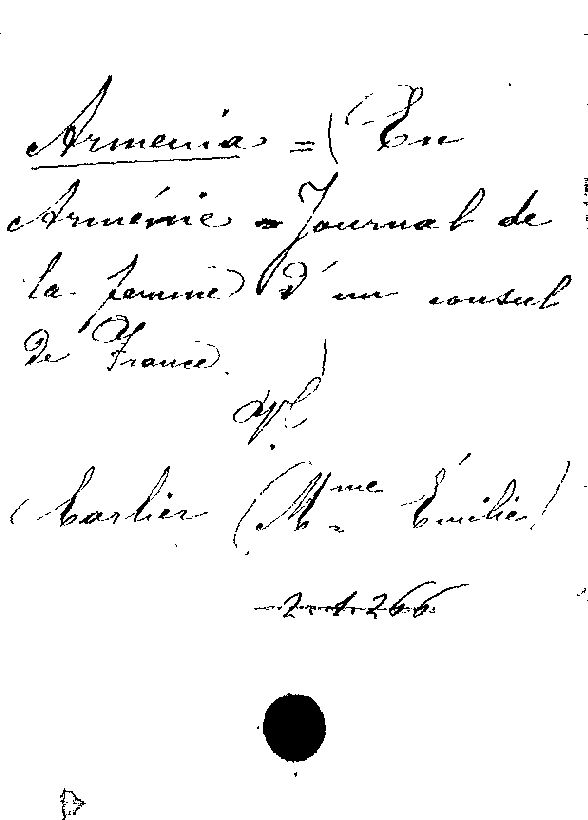 Armenia = (En
Arménie = Journal de
la femme d'un consul
de France.)
(Carlier (Mme Émilie)